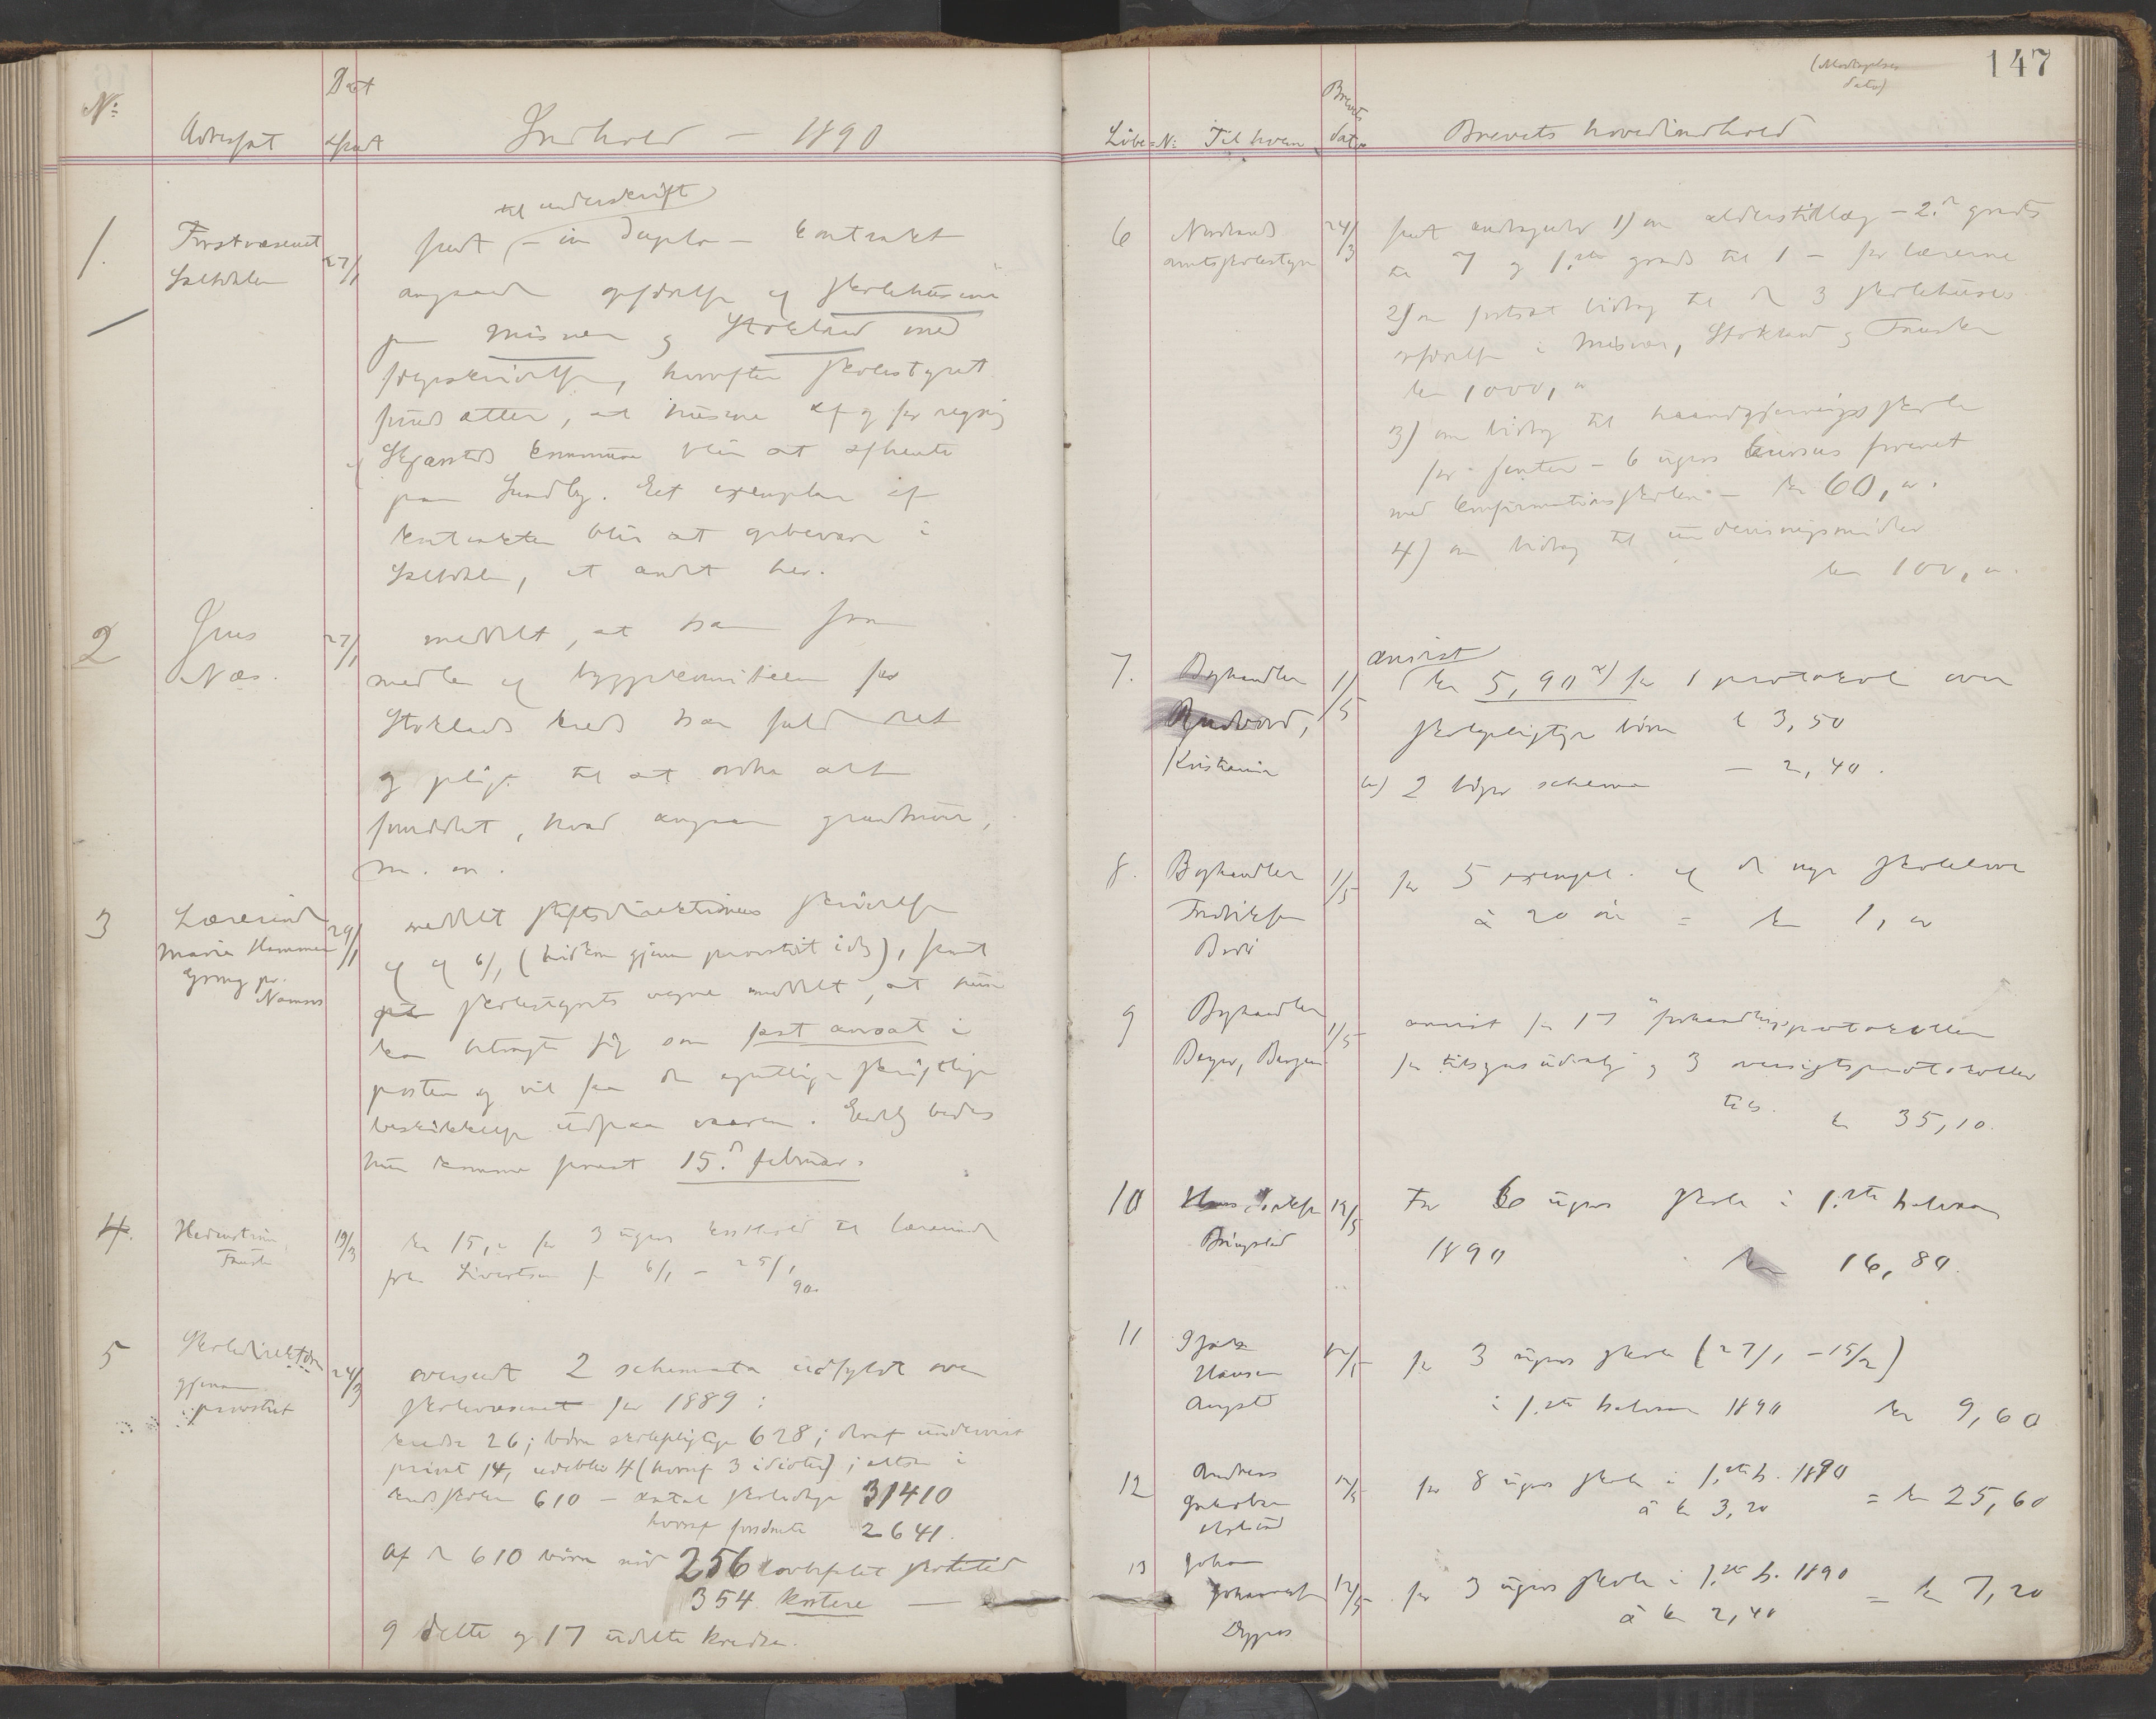 No:
Adressat
Dat
afsendt
Indhold – 1890
1.
Forstvæsenet
Saltdalen
27/1
til underskrift
sendt – in duplo – kontrakt
angaaende opførelse af skolehusene
paa Misvær og Stokland med
følgeskrivelse, hvorefter skolestyret
forudsætter, at husene af og for regning
af Skjerstads kommune blir at afhente
paa Sundby. Eet exemplar af
kontrakten blir at opbevare i
Saltdalen, et andet her.
2
Jens
Næs.
27/1
meddelt, at han som
medlem af byggekomiteen for
Stoklands kreds har fuld ret
og pligt til at ordne alt
fornødent, hvad angaar grundmur,
m. m.
3
Lærerinde
Maria Hammer
Gryng pr.
Namsos
29/1
meddelt stiftsdirektionens skrivelse
af 6/1 (hidkom gjennem provstiet idag), samt
paa skolestyrets vegne meddelt, at hun
kan betragte sig som fast ansat i
posten og vil faa den egentlige skriftlige
beskikkelse udpaa vaaren. Endelig bedes
hun komme senest 15.d februar.
4.
Hedmotinn
Fauske
19/3
kr 15,00 for 3 ugers kosthold til lærerinde
frk. Sivertsen fra 6/1 – 25/1 90.
5
Skoledirektøren
gjennem
provstiet
24/3
oversendt 2 schemata udfyldt over
skolevæsenet for 1889:
kredse 26; børn skolepligtige 628; deraf undervist
privat 14, udeblev 4 (hvoraf 3 idioter); altsaa i
kredsskolen 610 – antal skoledage 31410
hvoraf forsømte 2641.
Af de 610 børn nød 256 lovbefalet skoletid
354 kortere —
9 delte og 17 udelte kredse.
147
(Modtagelses
dato)
Løbe=No:
Til hvem
Brevets
dato
Brevets hovedindhold
6
Nordlands
amtsskolestyre
24/3
sendt andragender 1) om alderstillæg – 2.den grads
til 7 og 1.ste grads til 1 – for lærerne
2) om fortsat bidrag til de 3 skolehuses
opførelse i Misvær, Stokland og Fauske
kr 1000,00
3) om bidrag til haandgjerningsskole
for jenter – 6 ugers kursus forenet
med konfirmationsskolen – kr 60,00.
4) om bidrag til undervisningsmidler
kr 100,00.
7.
Boghandler
Kristiania
1/5
anvist
kr 5,90 a) for 1 protokol over
skolepligtige børn kr 3,50
b) 2 bøger schema – 2,40.
8.
Boghandler
Fredriksen
Bodø
1/5
for 5 exempl. af de nye skolelove
à 20 øre = kr 1,00
9
Boghandler
Beyer, Bergen
1/5
anvist for 17 forhandlingsprotokoller
for tilsynsudvalg og 3 oversigtsprotokoller
tils. kr 35,10.
10
12/5
For 6 ugers skole i 1.ste halvaar
1890 kr 16,80.
11
Hansen
12/5
for 3 ugers skole (27/1 – 15/2)
i 1.ste halvaar 1890 kr 9,60
12
Andreas
Jakobsen
12/5
for 8 ugers skole i 1.ste h. 1890
à kr 3,20 = kr 25,60
13
Johan
Johannesen
12/5
for 3 ugers skole i 1.ste h. 1890
à kr 2,40 = kr 7,20